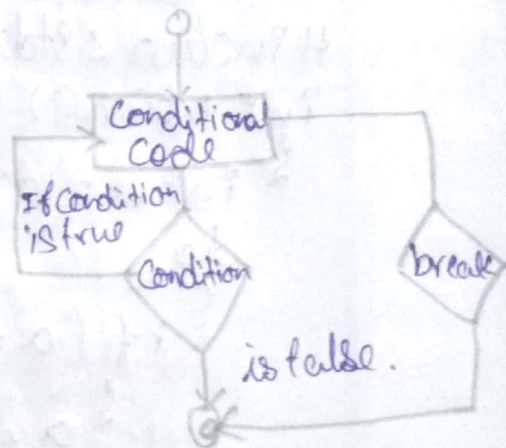 Conditional
Code
If Condition
is true
Condition
break
is false.